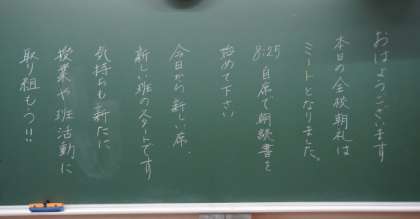 おはようございます
本日の全校朝礼は
ミートとなりました。
8:25 自席で朝読書を
始めて下さい
今日から新しい席、
新しい班のスタートです
気持ちも新たに、
授業や班活動に
取り組もう!!